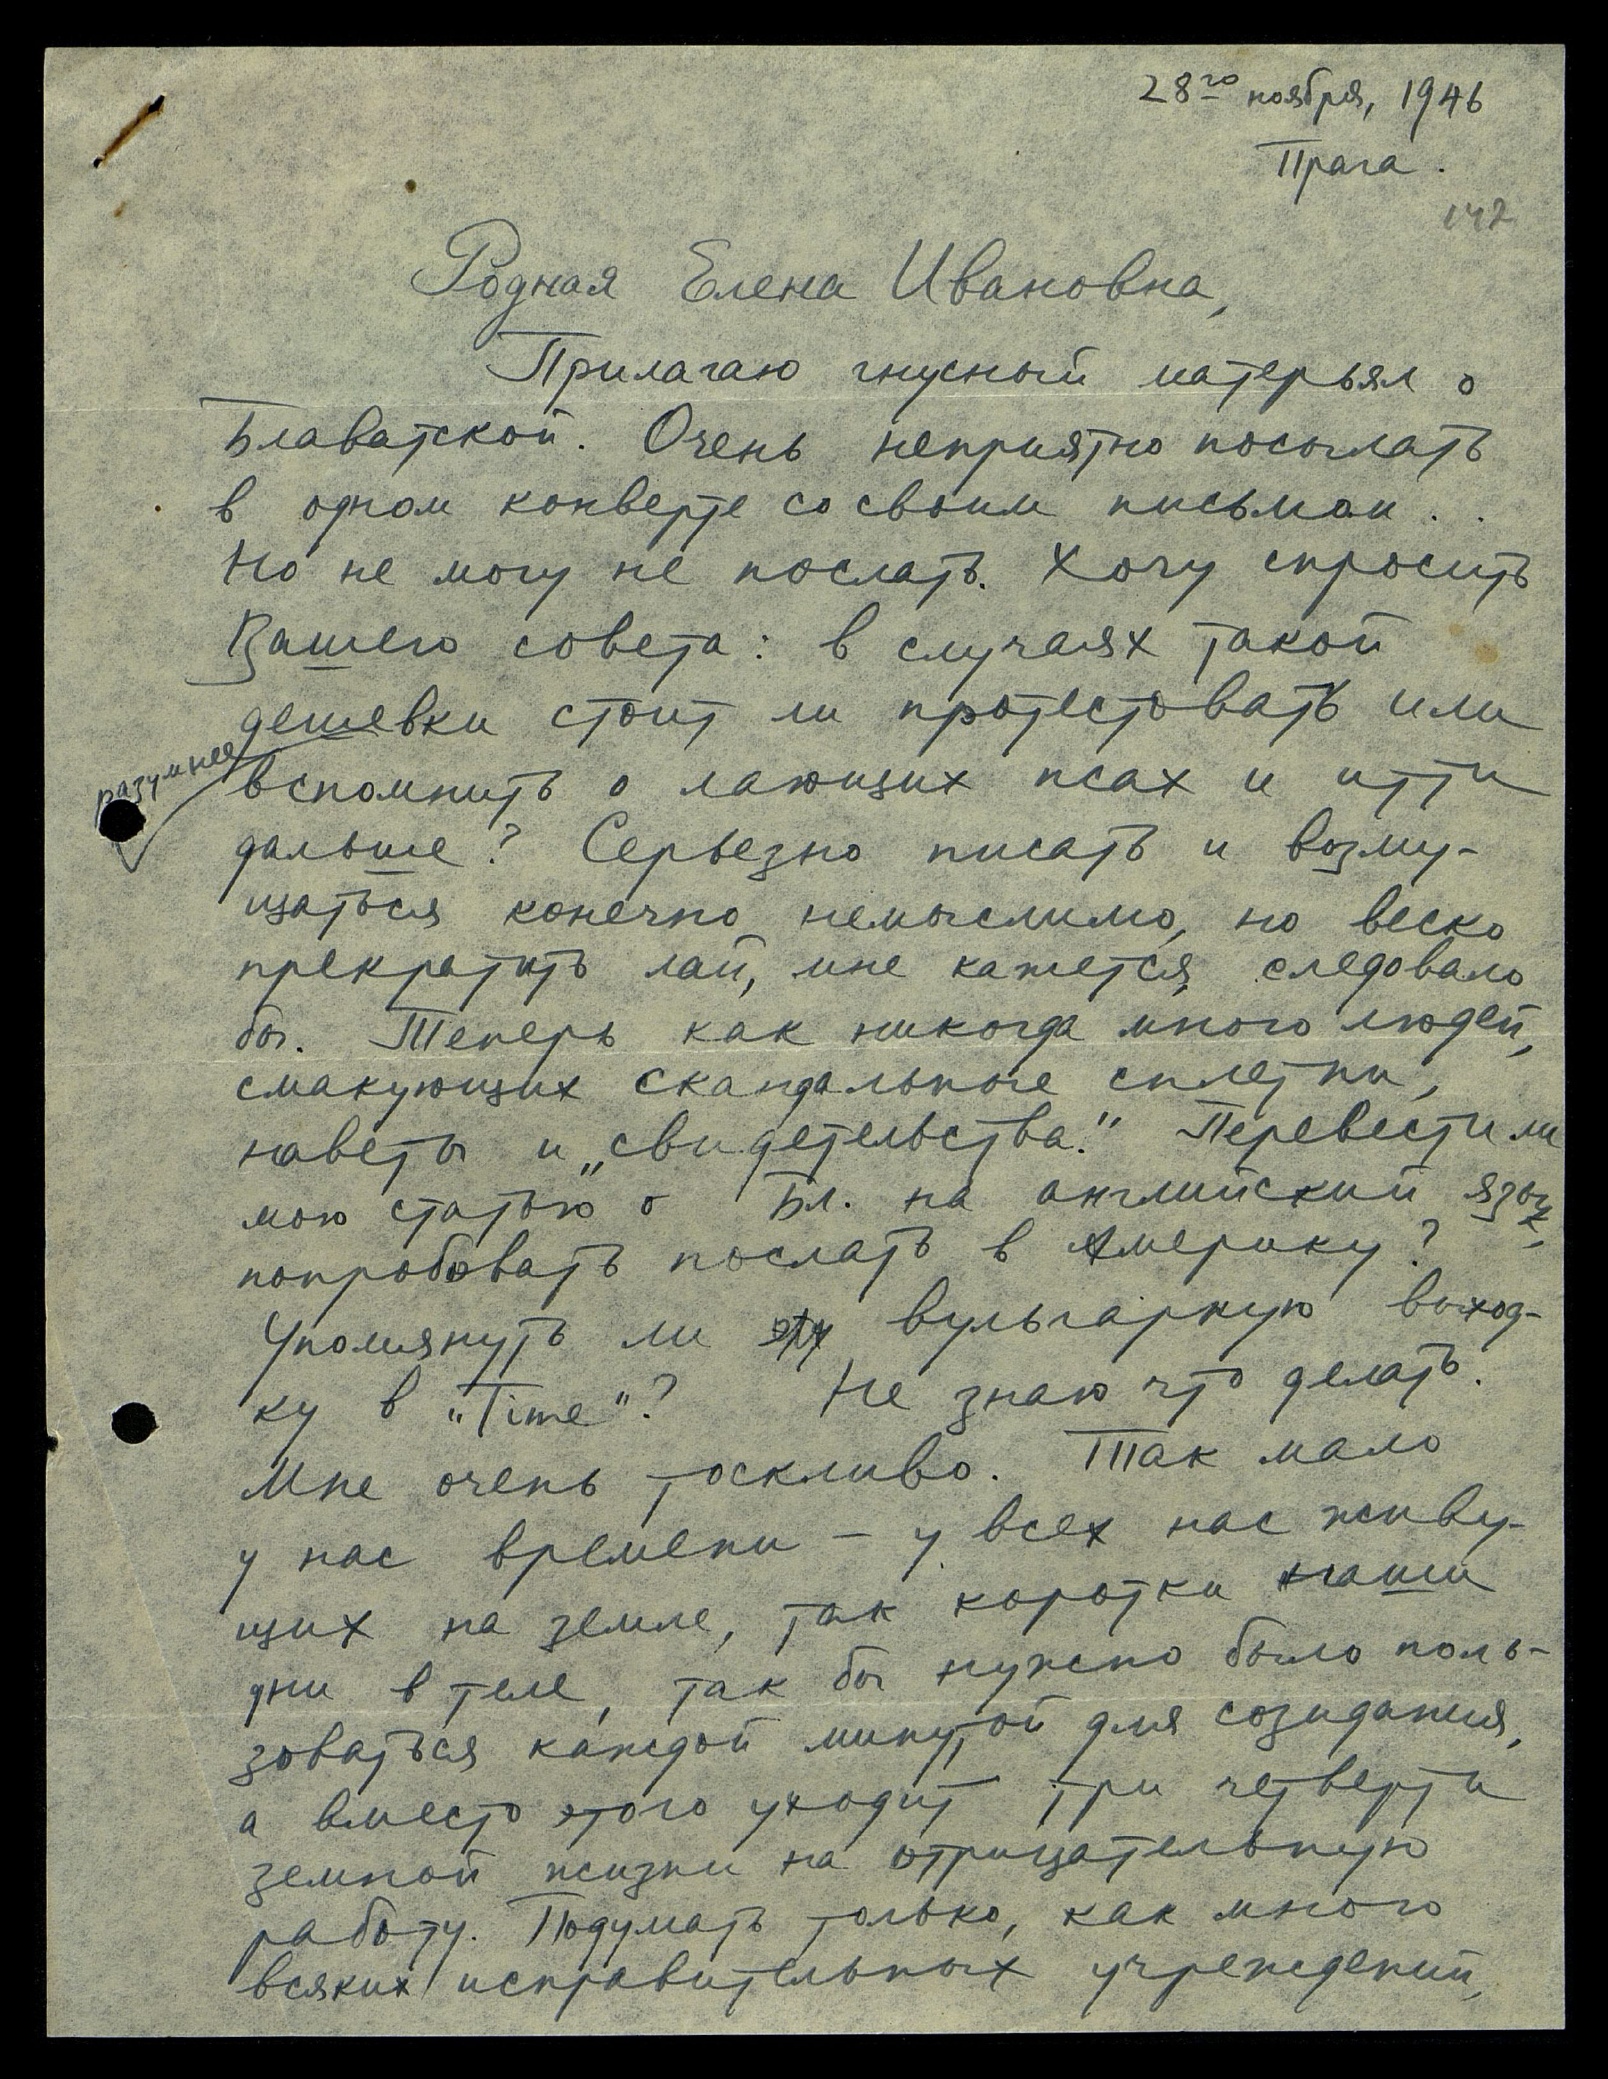 28го ноября, 1946
Прага.
142
Родная Елена Ивановна,
Прилагаю гнусный матерьял о
Блаватской. Очень неприятно посылать
в одном конверте со своим письмом..
Но не могу не послать. Хочу спросить
Вашего совета: в случаях такой
дешевки стоит ли протестовать или
разумнее
вспомнить о лающих псах и итти
дальше? Серьезно писать и возму-
щаться конечно немыслимо, но веско
прекратить лай, мне кажется, следовало
бы. Теперь как никогда много людей,
смакующих скандальные сплетни,
наветы и „свидетельства." Перевести ли
мою статью о Бл. на английский язык,
попробовать послать в Америку?
Упомянуть ли эту вульгарную выход-
ку в „Time"? Не знаю что делать.
Мне очень тоскливо. Так мало
у нас времени – у всех нас живу-
щих на земле, так коротки наши
дни в теле, так бы нужно было поль-
зоваться каждой минутой для созидания,
а вместо этого уходит три четверти
земной жизни на отрицательную
работу. Подумать только, как много
всяких исправительных учреждений,